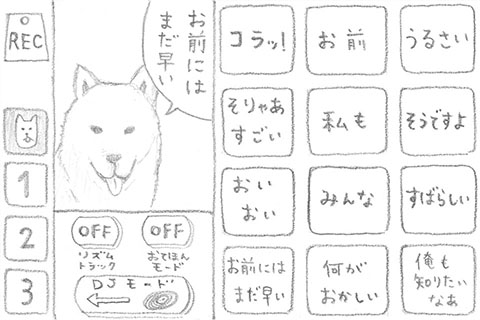 REC
1
2
3
お前には
まだ早い
OFF
リズム
トラック
OFF
おてほん
モード
DJモード
コラッ!
お前
うるさい
そりゃあ
すごい
私も
そうですよ
おい
おい
みんな
すばらしい
お前には
まだ早い
何が
おかしい
俺も
知りたい
なあ